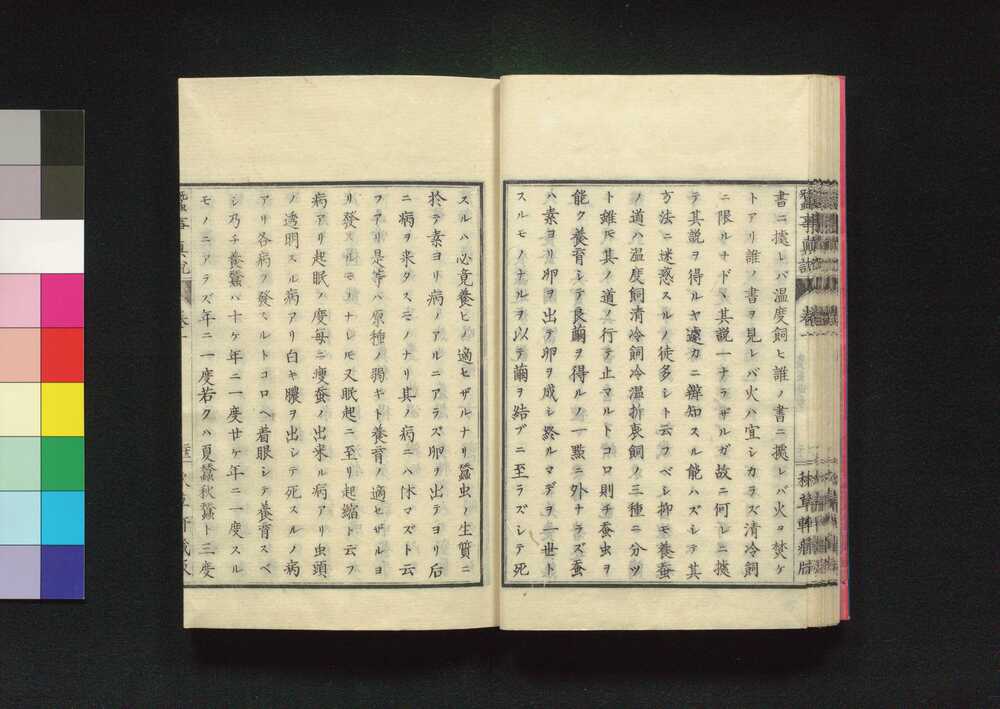 書ニ據レバ温度飼ヒ誰ノ書ニ據レバ火ヲ焚ケ
トアリ誰ノ書ヲ見レバ火ハ宜シカラズ清冷飼
ニ限ルナド丶其説一ナラザルガ故ニ何レニ據
テ其説ヲ得ルヤ遽カニ辨知スル能ハズシテ其
方法ニ迷惑スルノ徒多シト云フベシ抑モ養蚕
ノ道ハ温度飼清冷飼冷温折衷飼ノ三種ニ分ツ
ト雖𪜈其ノ道ノ行テ止マルトコロ則チ蚕虫ヲ
能ク養育シテ良繭ヲ得ルノ一點ニ外ナラズ蚕
ハ素ヨリ卵ヲ出テ卵ヲ成シ終ルマデヲ一世ト
スルモノナルヲ以テ繭ヲ結ブニ至ラズシテ死
スルハ必竟養ヒノ適ヒザルナリ蠶虫ノ生質ニ
於テ素ヨリ病ノアルニアラズ卵ヲ出テヨリ后
ニ病ヲ来タスモノナリ其ノ病ニハ休マズト云
フアリ是等ハ原種ノ弱キト養育ノ適ヒザルヨ
リ發スルモノナレ𪜈又眠起ニ至リ起縮ト云フ
病アリ起眠ノ度毎ニ痩蚕ノ出来ル病アリ虫頭
ノ透明スル病アリ白キ膿ヲ出シテ死スルノ病
アリ各病ヲ發スルトコロヘ着眼シテ養育スベ
シ乃チ養蠶ハ十ケ年ニ一度廿ケ年ニ一度スル
モノニアラズ年ニ一度若クハ夏蠶秋蠶ト三度